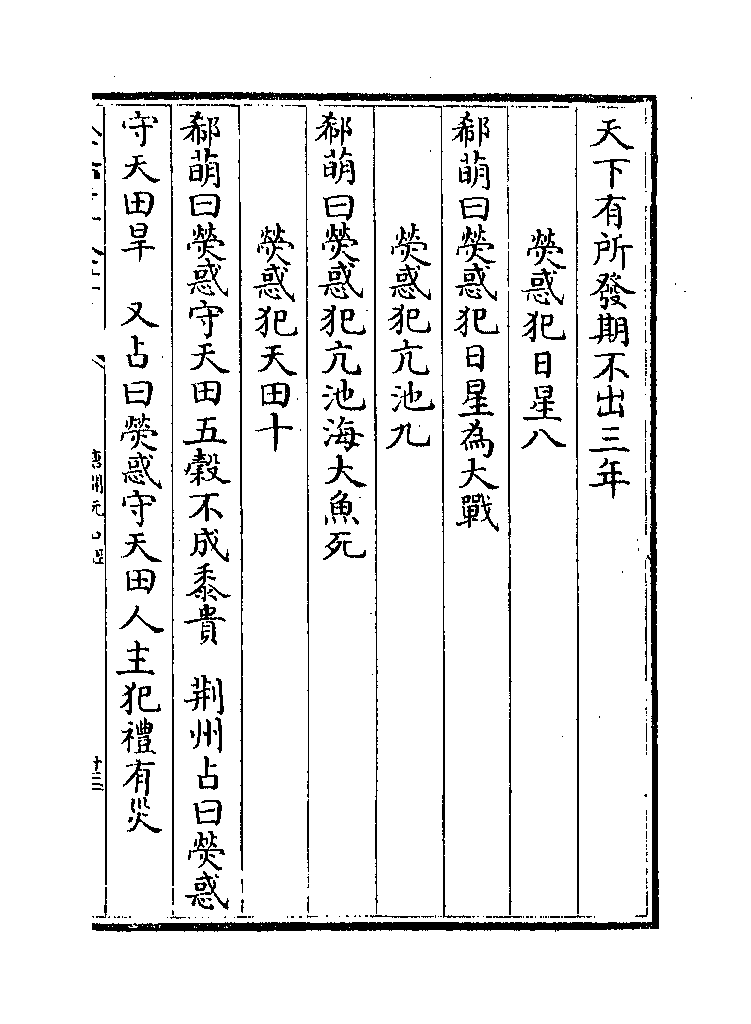 天下有所發期不出三年
熒惑犯日星八
郗萌曰熒惑犯日星為大戰
熒惑犯亢池九
郗萌曰熒惑犯亢池海大魚死
熒惑犯天田十
郗萌曰熒惑守天田五穀不成黍貴　荆州占曰熒惑
守天田旱　又占曰熒惑守天田人主犯禮有災
唐開元占經
廿三